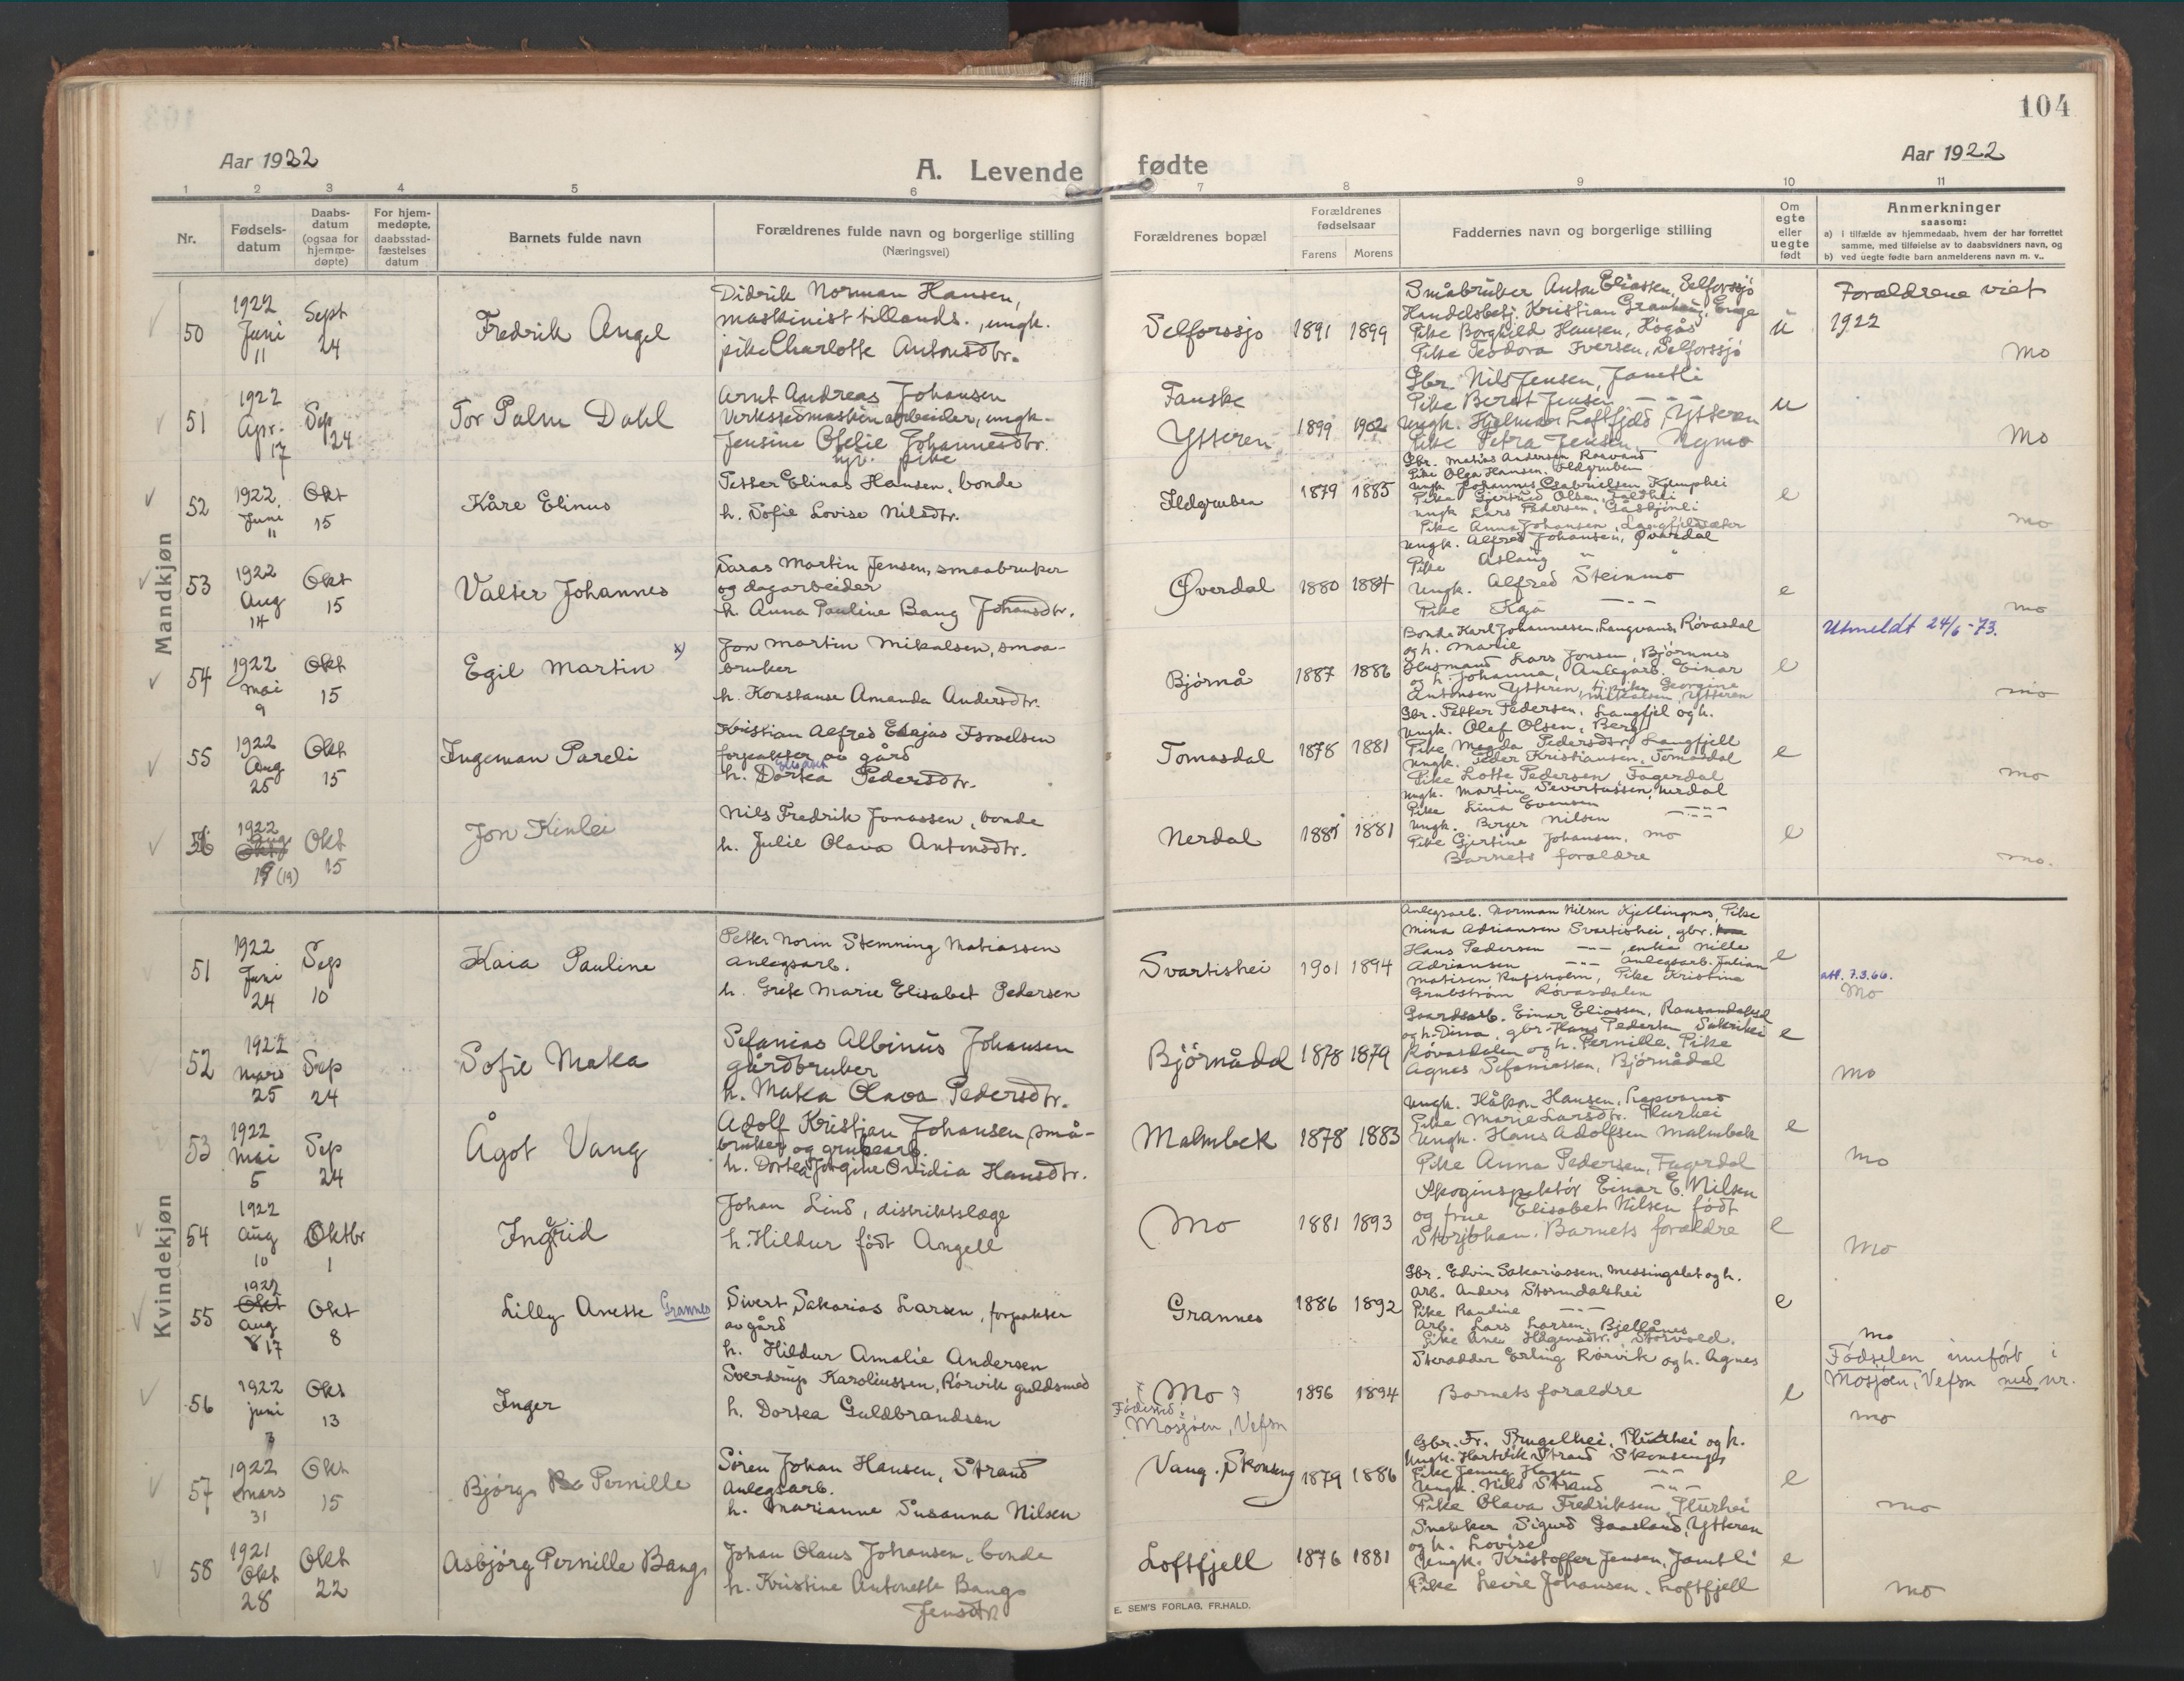 104
Aar 1922
A. Levende fødte
Aar 1922
1 2 3 4 5 6 7 8 9 10 11
Nr.
Fødsels-
datum
Daabs-
datum
(ogsaa for
hjemme-
døpte)
For hjem-
medøpte,
daabsstad-
fæstelses
datum
Barnets fulde navn
Forældrenes fulde navn og borgerlige stilling
(Næringsvei)
Forældrenes bopæl
Forældrenes
fødselsaar
Farens Morens
Faddernes navn og borgerlige stilling
Om
egte
eller
uegte
født
Anmerkninger
saasom:
a) i tilfælde av hjemmedaab, hvem der har forrettet
samme, med tilføielse av to daabsvidners navn, og
b) ved uegte fødte barn anmelderens navn m. v..
Mandkjøn
50
1922
Juni
11
Sept
24
Fredrik Angel
Didrik Norman Hansen,
maskinist tillands., ungk.
pike Charlotte Antonsdtr.
Selforssjø
1891 1899
Småbruker Anton Eliassen, Selforssjø
Handelsbetj. Kristian Enge
Pike Borghild Hansen, Høgås
Pike Teodora Iversen, Selforssjø
u
Forældrene viet
1922
Mo
51
1922
Apr.
17
Sep
24
Tor Palm Dahl
Arnt Andreas Johansen
Verkstedmaskinarbeider, ungk.
Jensine Ofelie Johannesdtr.
pike
Fauske
Ytteren
1899 1902
Gbr. Nils Jensen, Jamtli
Pike Berut Jensen -"-
Ungk. Hjelmar Loftfjeld Ytteren
Pike Petra Jensen, Nymo
u
Mo
52
1922
Juni
11
Okt
15
Kåre Elinus
Petter Elinas Hansen, bonde
h. Sofie Lovise Nilsdtr.
Ildgruben
1879 1885
Gbr. Matias Andersen Raavand
Pike Olga Hansen, Ildgruben
Ungk Johannes Gabrielsen Kamphei
Pike Gjertrud Olsen,
Ungk Lars Pedersen,
Pike Anna Johansen, Langfjeldsæter
e
Mo
53
1922
Aug
14
Okt
15
Valter Johannes
Saras Martin Jensen, smaabruker
og dagarbeider
h. Anna Pauline Bang Johansdtr.
Øverdal
1880 1884
Ungk. Alfred Johansen, Øverdal
Pike Aslaug " "
Ungk. Alfred Steinmo
Pike Kaja -"-
e
Mo
54
1922
Mai
9
Okt
15
Egil Martin x)
Jon Martin Mikalsen, smaa-
bruker
h. Konstanse Amanda Andersdtr.
Bjørnå
1887 1886
Bonde Karl Johannesen, Langvand, Røvasdal
og h. Marie
Husmand Lars Jonsen, Bjørnnes
og h. Johanna, Anlegarb. Einar
Antonsen Ytteren, pike Georgine
Mikalsen, Ytteren
e
Utmeldt 24/6 -73.
Mo
55
1922
Aug
25
Okt
15
Ingeman Pareli
Kristian Alfred Elajas Israelsen
forpakter av gård
h. Dortea Elisabet Pedersdtr.
Tomasdal
1878 1881
Gbr. Petter Pedersen, Langfjel og h.
Ungk. Olef Olsen, Berg
Pike Magda Pedersdtr, Langfjell
Ungk. Peder Kristiansen, Tomasdal
Pike Lotte Pedersen, Fagerdal
e
Mo
56
1922
Aug
19 (19)
Okt
15
Jon Kinlei
Nils Fredrik Jonassen, bonde
h. Julie Olava Antonsdtr.
Nerdal
1885 1881
Ungk. Martin Severtsen, Nerdal
Pike Lina Evensen -"-
Ungk. Berger Nilsen -"-
Pike Gjertine Johansen, Mo
Barnets forældre
e
Mo.
Kvindekjøn
51
1922
Juni
24
Sep
10
Kaia Pauline
Petter Norin Stemning Matiassen
Anlegsarb.
h. Grete Marie Elisabet Pedersen
Svartishei
1901 1894
Anlegsarb. Norman Nilsen Kjellingnes, Pike
Mina Adriansen Svartishei, gbr.
Hans Pedersen -"-, enke Nille
Adriansen -"- Anlegsarb. Julian
Matisen Rufsholm, Pike Kristine
Grubstrøm Røvasdalen
e
att. 7.3.66.
Mo
52
1922
Mars
25
Sep
24
Sofie Maka
Sefanias Albinus Johansen
gårdbruker
h. Maka Olava Pedersdtr.
Bjørnådal
1878 1879
Gaardsarb. Einar Eliassen,
og h. Dina, gbr. Hans Pedersen
Røvasdalen og h. Pernille, Pike
Agnes Sefaniassen, Bjørnådal
e
Mo
53
1922
Mai
5
Sep
24
Ågot Vang
Adolf Kristian Johansen, små-
bruker og grubearb.
h. Dortea Jorgine Ovidia Hansdtr.
Malmbek
1878 1883
Ungk. Håkon Hansen,
Pike Marie Larsdtr. Plurhei
Ungk. Hans Adolfsen Malmbek
Pike Anna Pedersen, Fagerdal
e
Mo
54
1922
Aug
10
Oktbr
1
Ingrid
Johan Lind, distriktslæge
h. Hildur født Angell
Mo
1881 1893
Skoginspektør Einar E. Nilsen
og frue Elisabet Nilsen født
Storjohan. Barnets forældre
e
Mo
55
1922
Okt
Aug
8 17
Okt
8
Lilly Anette Grannes
Sivert Sakarias Larsen, forpakter
av gård
h. Hildur Amalie Andersen
Grannes
1886 1892
Gbr. Edvin Sakariassen, Messingslet og h.
Arb. Anders Stormdalshei
Pike Randine -"-
Arb. Lars Larsen, Bjellånes
Pike Ane Hågensdtr. Storvold.
e
Mo
56
1922
Juni
3
Okt
13
Inger
Sverdrup Karoliussen, Rørvik guldsmed
h. Dortea Guldbrandsen
Mo
Fødested:
Mosjøen, Vefsn
1896 1894
Skrædder Erling Rørvik og h. Agnes
Barnets forældre
e
Fødselen innført i
Mosjøen, Vefsn med nr.
Mo
57
1922
Mars
31
Okt
15
Bjørg Pernille
Søren Johan Hansen, Strand
Anlegsarb.
h. Marianne Susanna Nilsen
Vang. Skonseng
1879 1886
Gbr. Fr. Prugelhei, Plurhei og h.
Ungk. Hartvik Strand Skonseng
Pike Jenny Hagen -"-
Ungk. Nils Strand -"-
Pike Olava Fredriksen Plurhei
e
Mo
58
1921
Okt
28
Okt
22
Asbjørg Pernille Bang
Johan Olaus Johansen, bonde
h. Kristine Antonette Bang
Jensdtr
Loftfjell
1876 1881
Snekker Sigurd Gaasland, Ytteren
og h. Lovise
Ungk. Kristoffer Jensen, Jamtli
Pike Levie Johansen, Loftfjell
e
Mo
E. SEM'S FORLAG, FR.HALD.